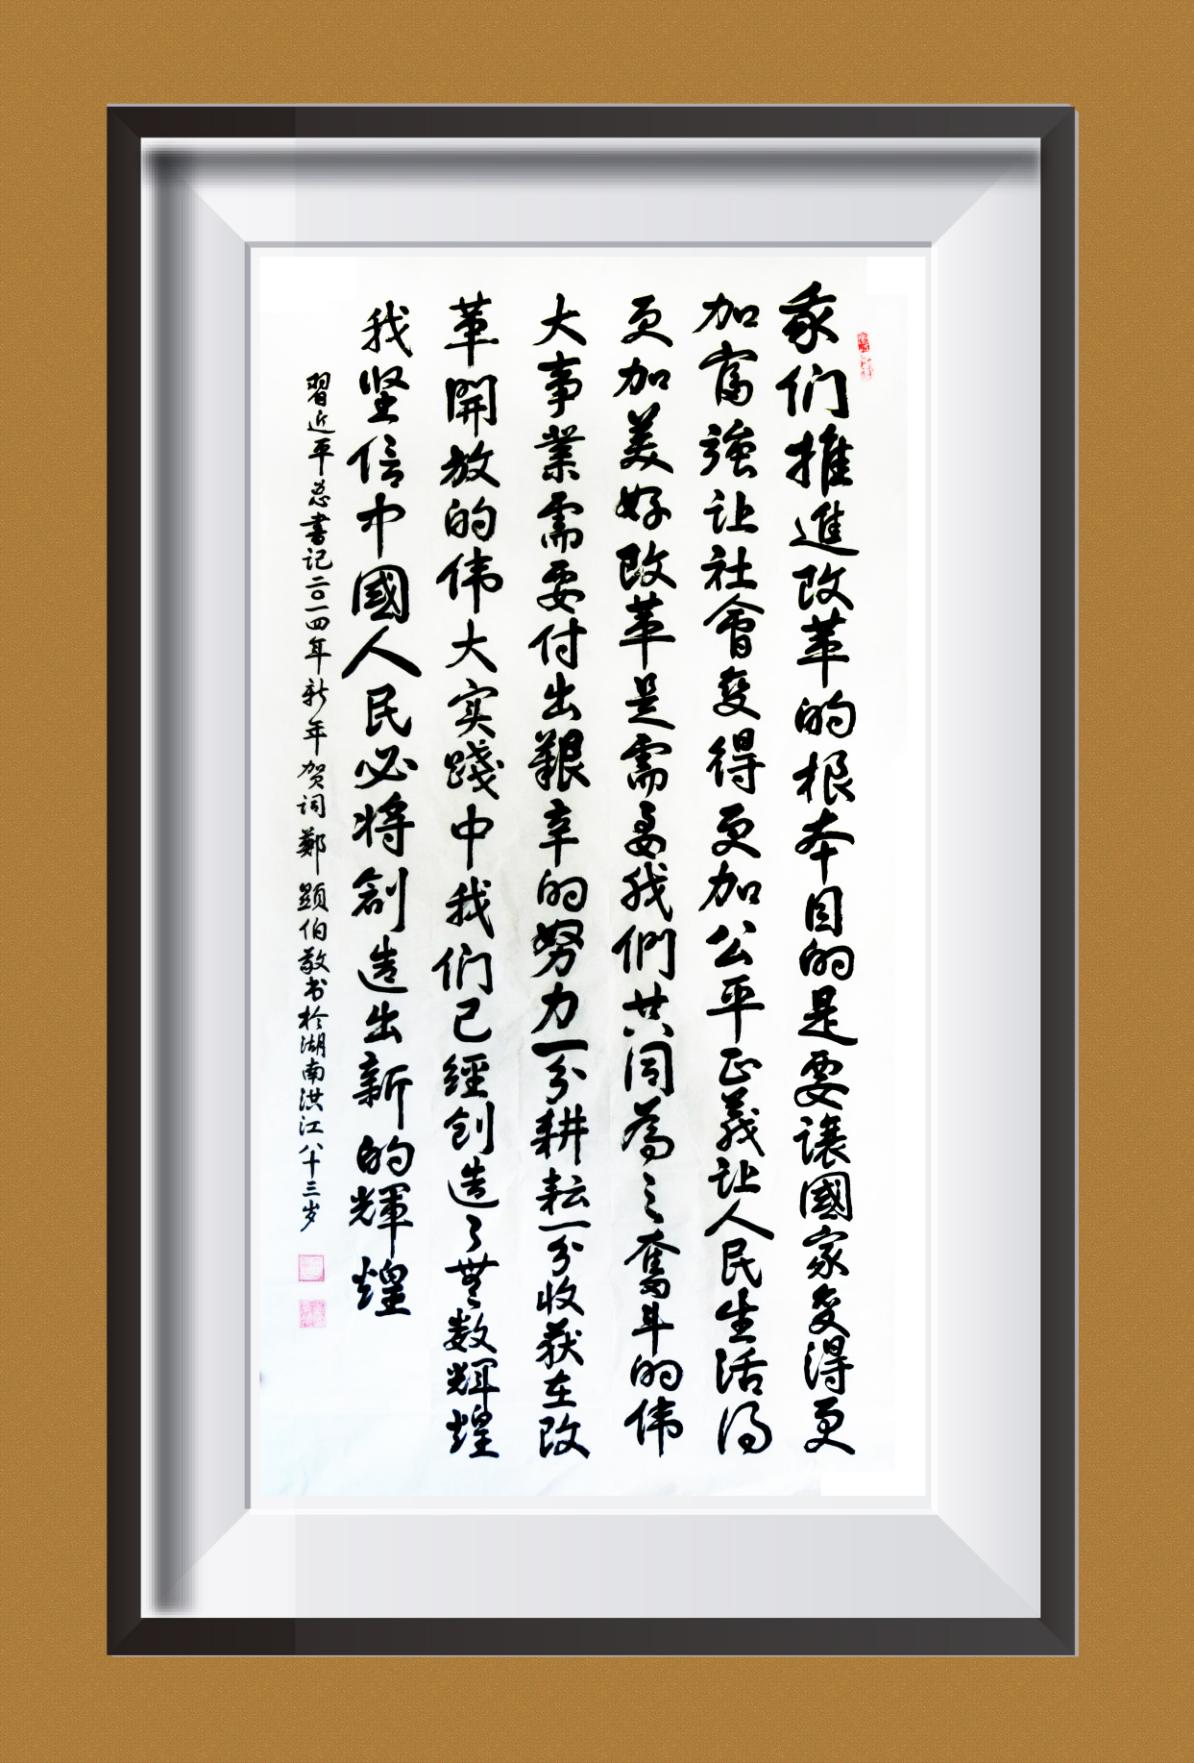 我们推進改革的根本目的是要讓國家变得更
加富強让社會变得更加公平正義让人民生活得
更加美好改革是需要我們共同為之奮斗的伟
大事業需要付出艱辛的努力一分耕耘一分收获在改
革開放的伟大实踐中我们已經创造了無数輝煌
我坚信中國人民必将創造出新的輝煌
習近平总書记二〇一四年新年贺词鄭顕伯敬书於湖南洪江八十三岁